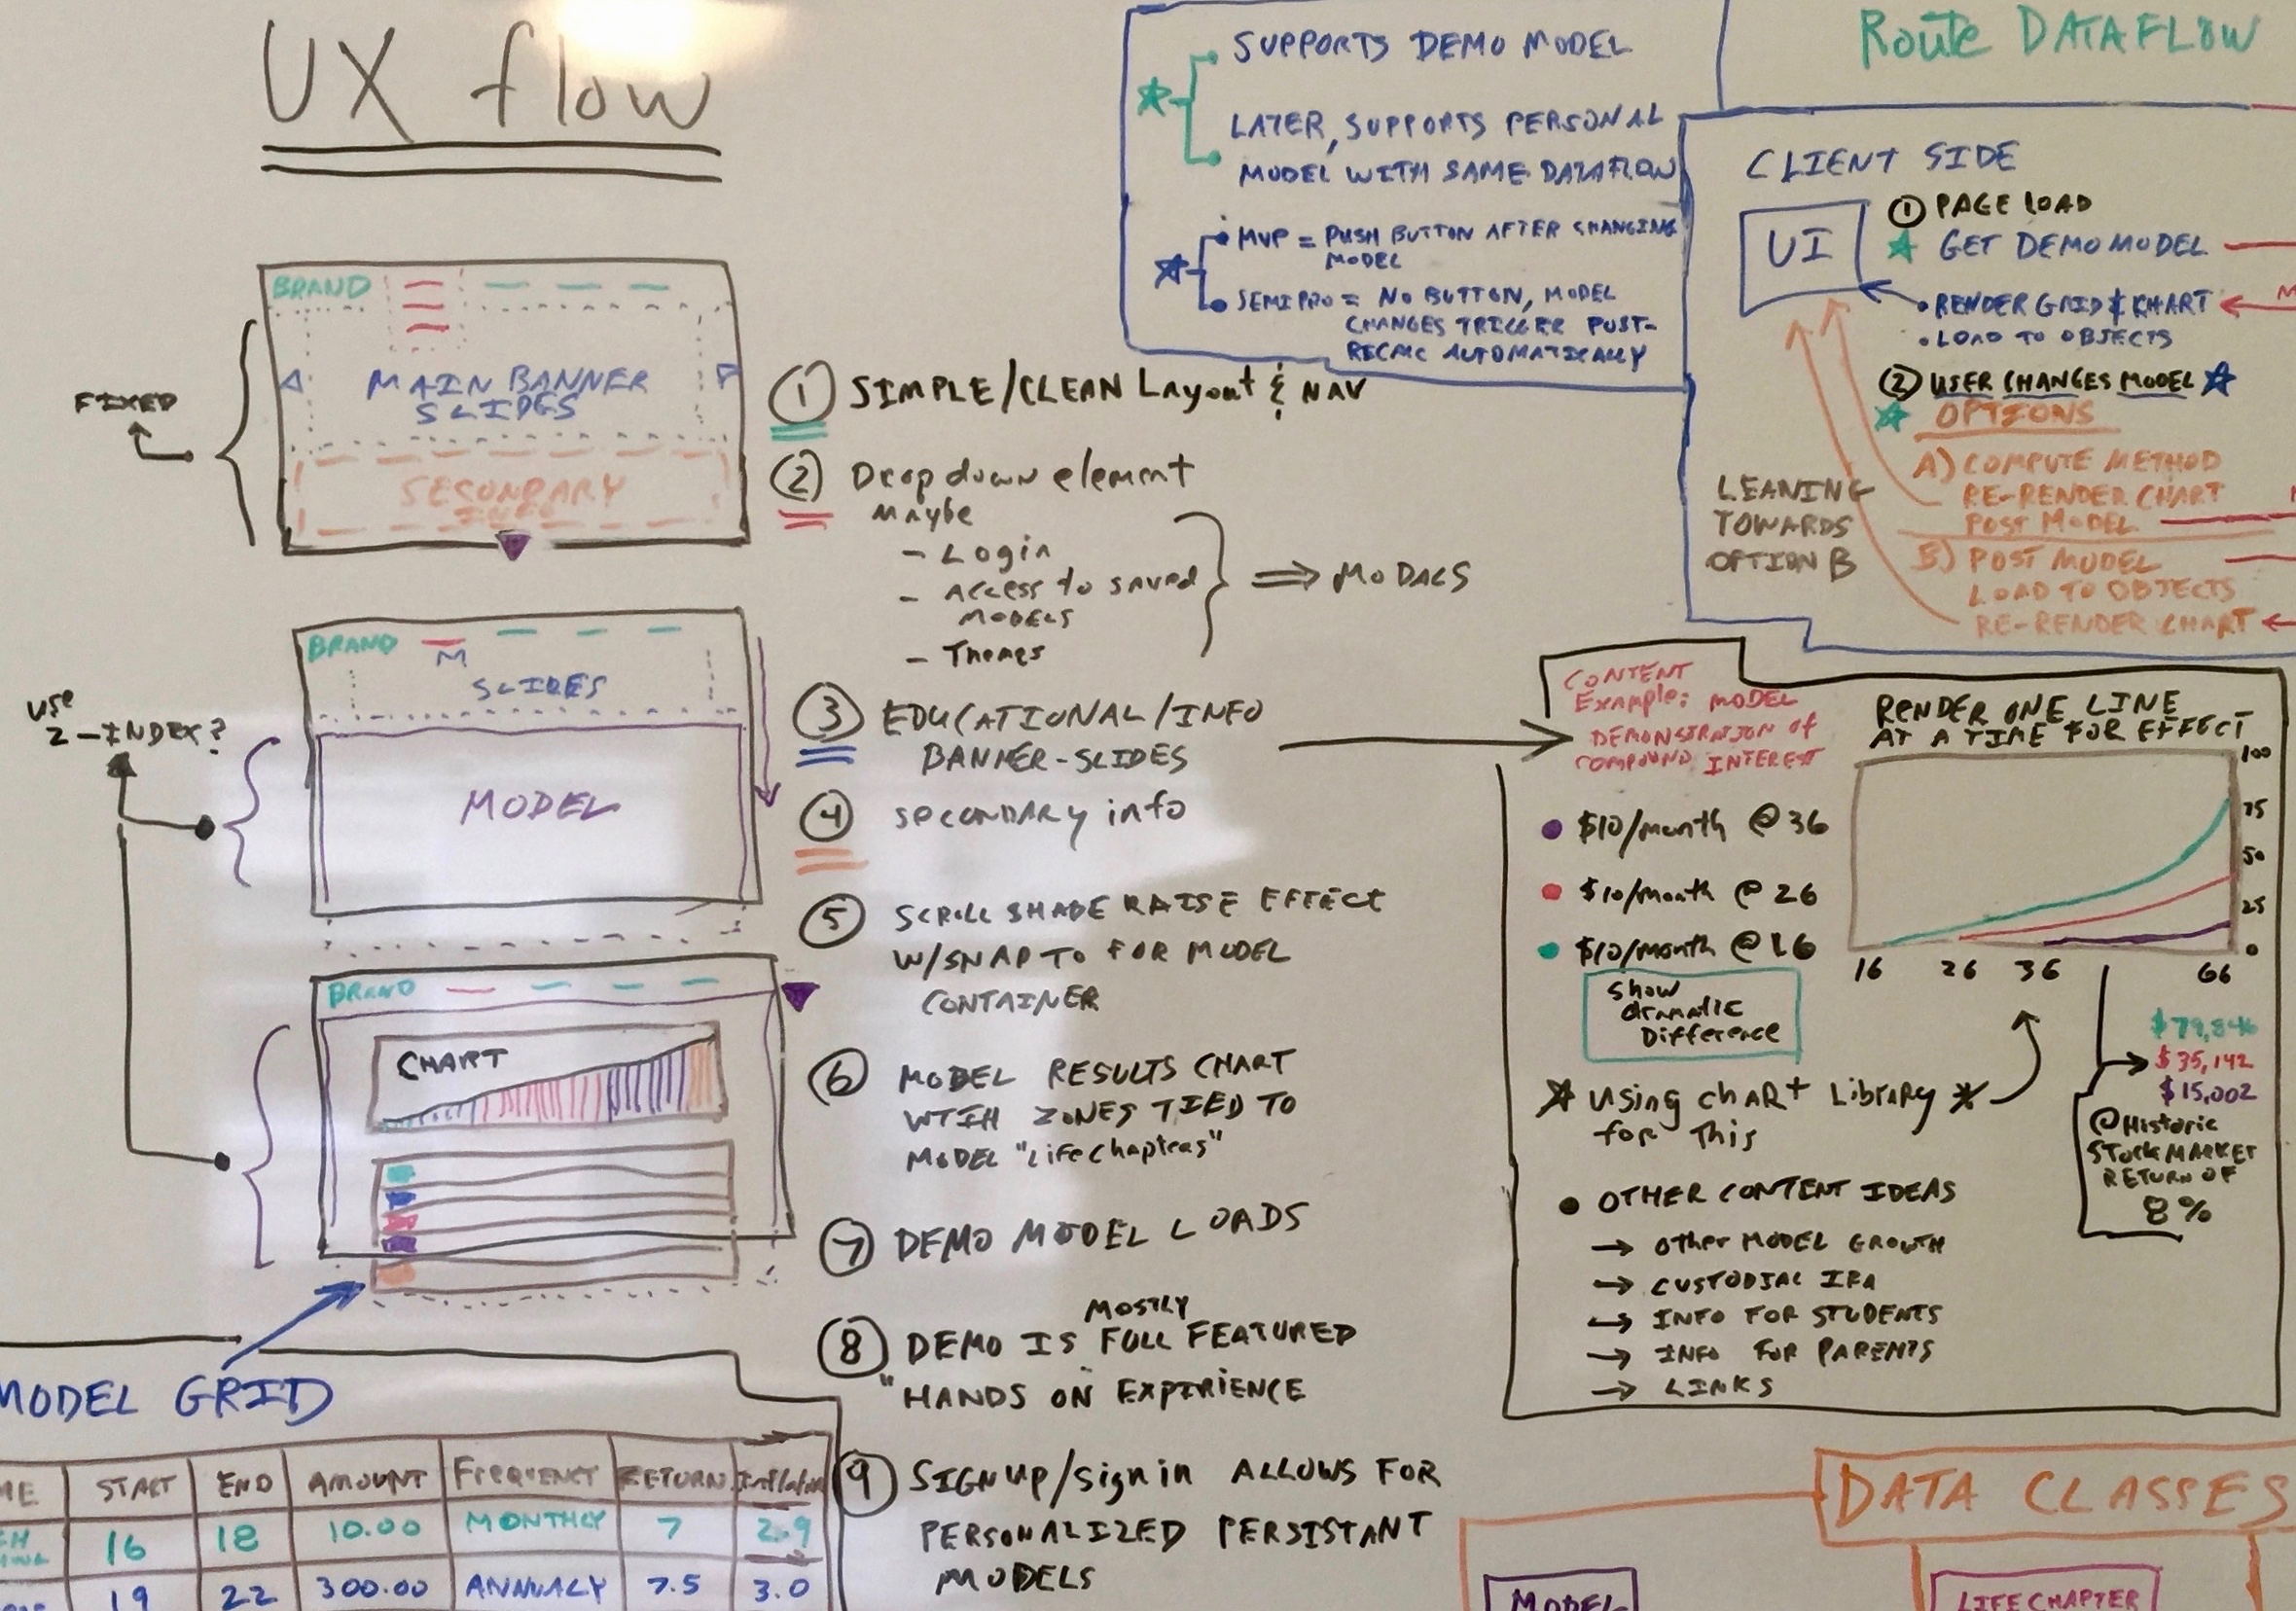 UX flow
BRAND
MAIN BANNER
SLIDES
SECONDARY
INFO
FIXED
BRAND
M
SLIDES
MODEL
USE
Z-INDEX?
BRAND
CHART
① SIMPLE/CLEAN Layout & NAV
② Dropdown element
Maybe
- Login
- Access to saved
MODELS
- Themes
⇒ MODALS
③ EDUCATIONAL/INFO
BANNER-SLIDES
④ SECONDARY info
⑤ SCROLL SHADE RAISE EFFECT
W/SNAP TO FOR MODEL
CONTAINER
⑥ MODEL RESULTS CHART
WTIH ZONES TIED TO
MODEL "LifeChapters"
⑦ DEMO MODEL LOADS
MOSTLY
⑧ DEMO IS FULL FEATURED
"HANDS ON EXPIRIENCE
⑨ SIGNUP/Sign in ALLOWS FOR
PERSONALIZED PERSISTANT
MODELS
MODEL GRID
START END AMOUNT FREQUENCY RETURN Inflation
16 18 10.00 MONTHLY 7 2.9
19 22 300.00 ANNUALY 7.5 3.0
SUPPORTS DEMO MODEL
LATER, SUPPORTS PERSONAL
MODEL WITH SAME DATAFLOW
MVP = PUSH BUTTON AFTER CHANGING
MODEL
SEMI PRO = NO BUTTON, MODEL
CHANGES TRIGGER POST-
RECALC AUTOMATICALLY
Route DATAFLOW
CLIENT SIDE
UI
① PAGE LOAD
GET DEMO MODEL
• RENDER GRID & CHART
• LOAD TO OBJECTS
② USER CHANGES MODEL
OPTIONS
A) COMPUTE METHOD
RE-RENDER CHART
POST MODEL
B) POST MODEL
LOAD TO OBJECTS
RE-RENDER CHART
LEANING
TOWARDS
OPTION B
CONTENT
Example: MODEL
DEMONSTRATION of
COMPOUND INTEREST
RENDER ONE LINE
AT A TIME FOR EFFECT
100
75
50
25
0
16 26 36 66
• $10/month @ 36
• $10/month @ 26
• $10/month @ 16
Show
dramatic
Difference
Using chart Library
for This
$35,142
$15,002
@Historic
STOCK MARKET
RETURN OF
8%
• OTHER CONTENT IDEAS
→ Other MODEL GROWTH
→ CUSTODIAL IRA
→ INFO FOR STUDENTS
→ INFO FOR PARENTS
→ LINKS
DATA CLASSES
MODEL
LIFECHAPTER